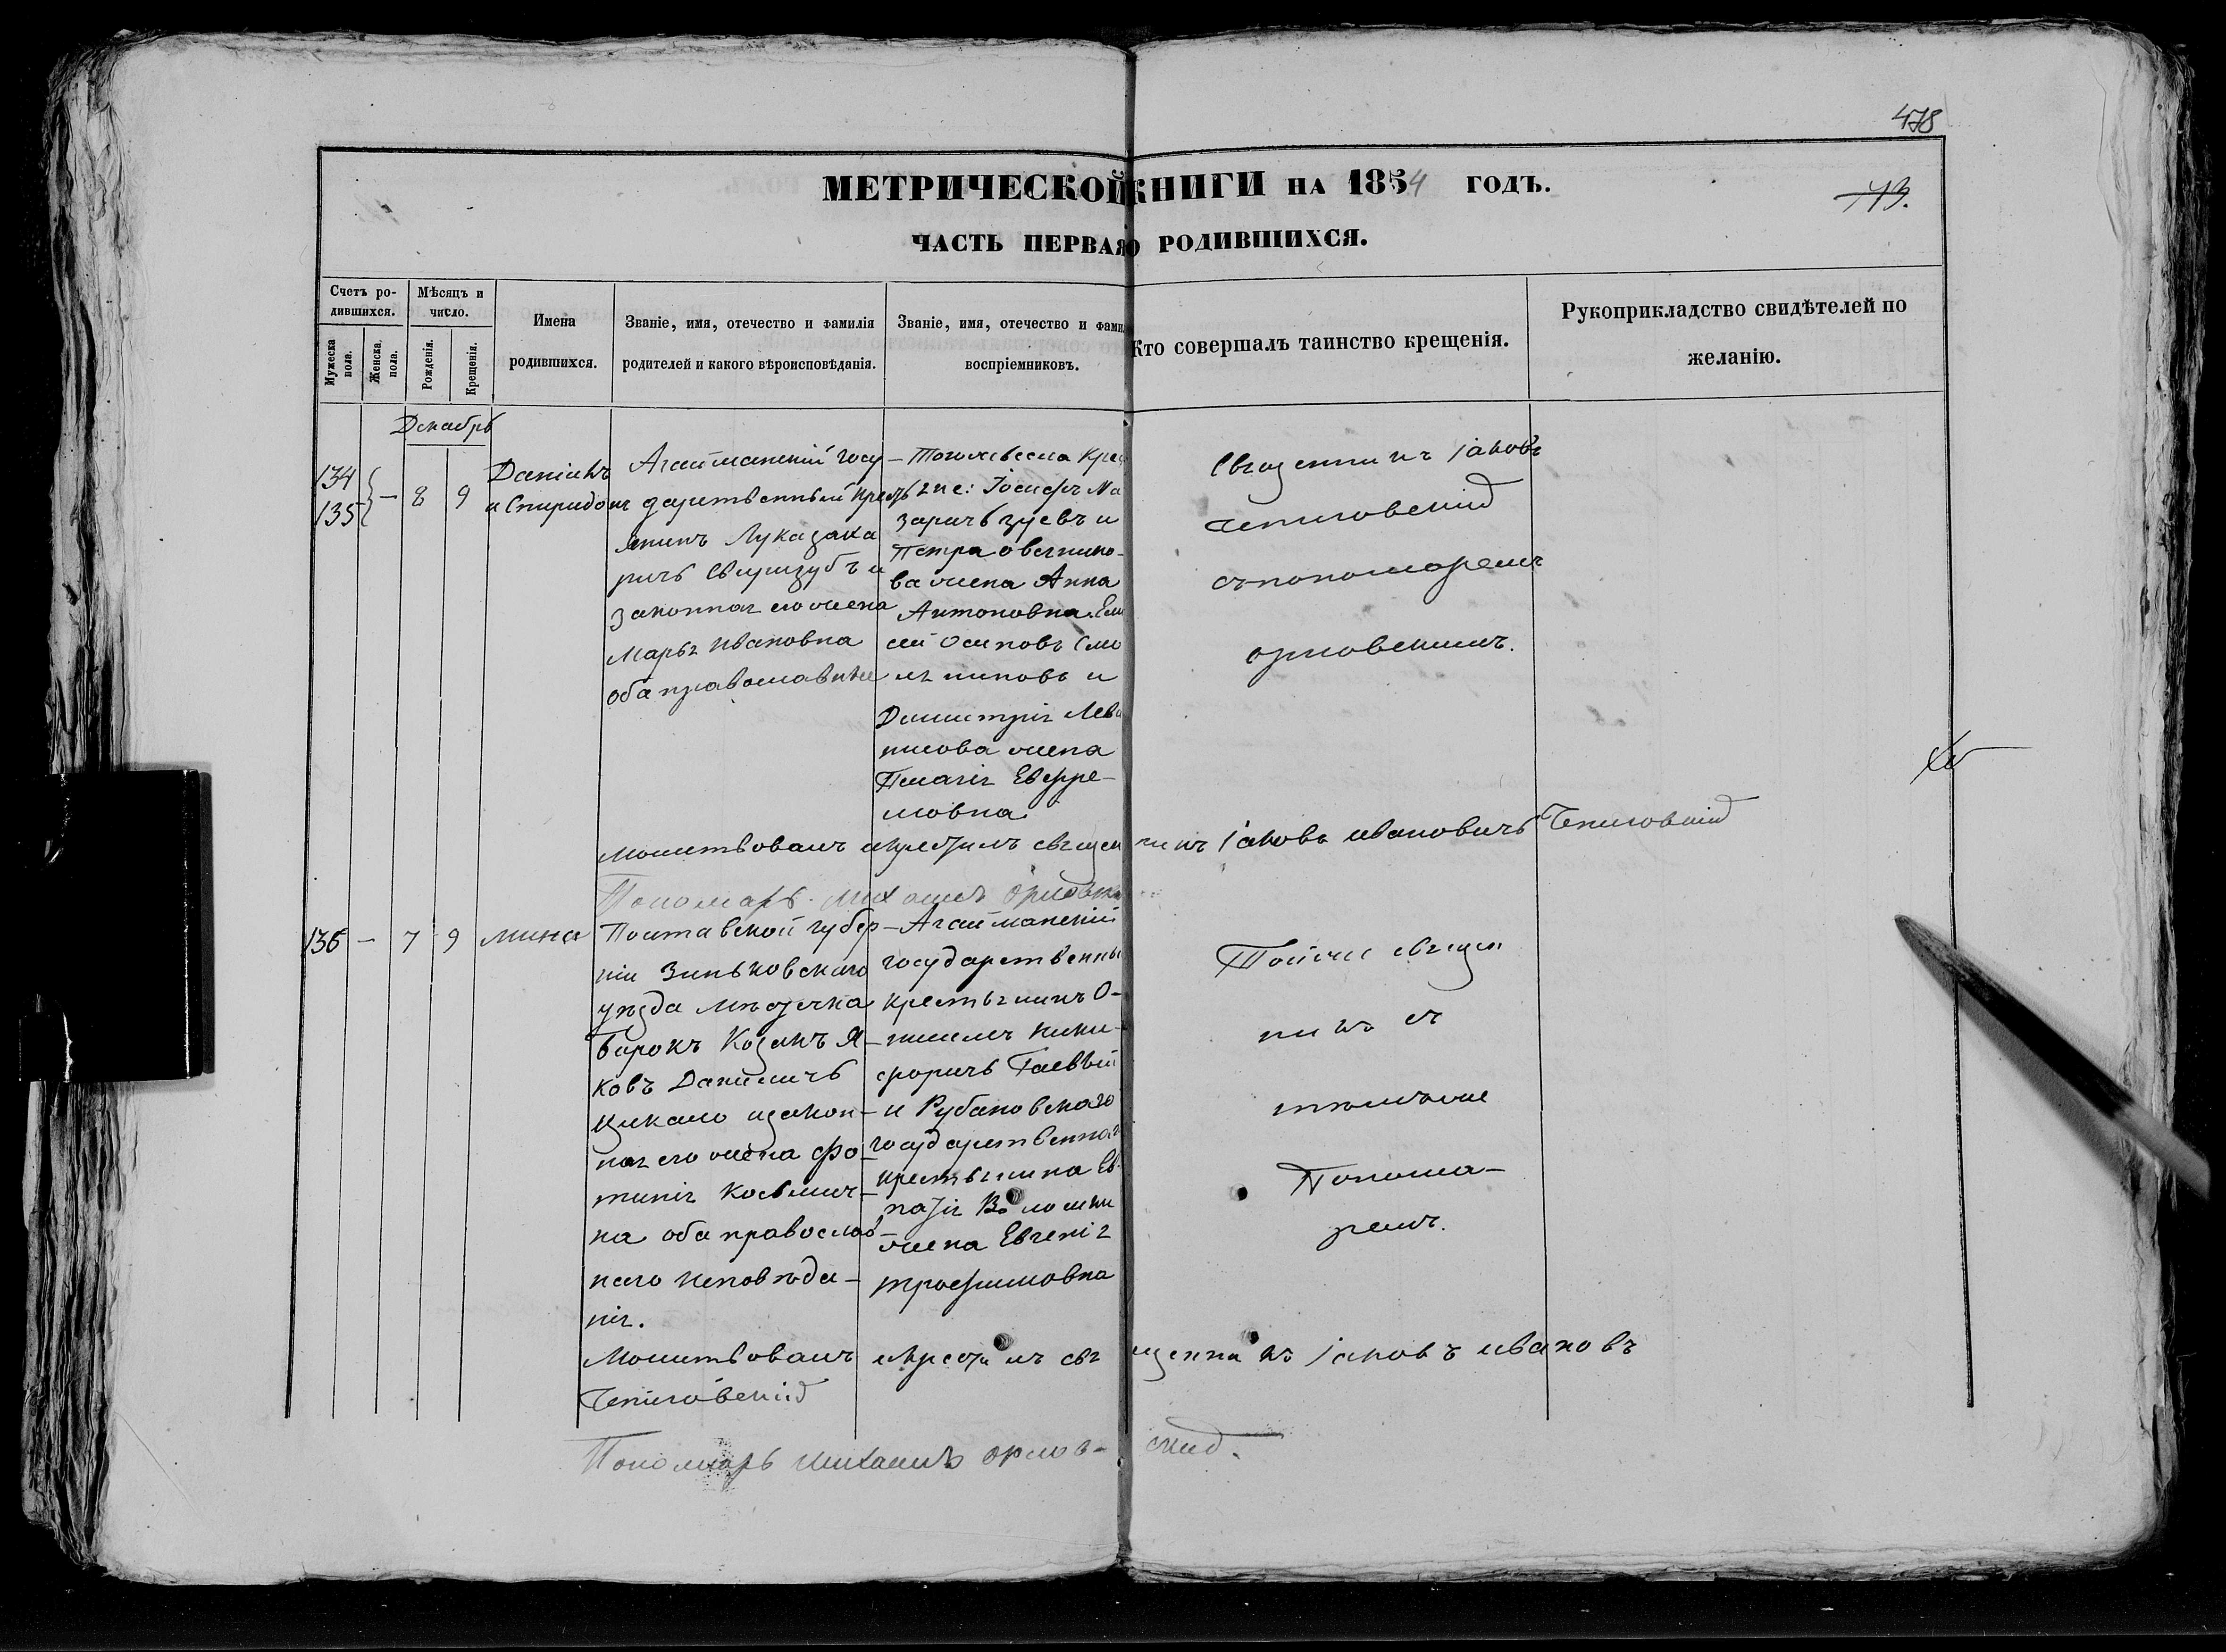 478
МЕТРИЧЕСКОЙ КНИГИ НА 1854 ГОДЪ.
ЧАСТЬ ПЕРВАЯ О РОДИВШИХСЯ.
Счетъ ро-
дившихся.
Мужеска пола.
Женска пола.
Мѣсяцъ и
число.
Рожденія.
Крещенія.
Имена
родившихся.
Званіе, имя, отечество и фамилія
родителей и какого вѣроисповѣданія.
Званіе, имя, отечество и фами
воспріемниковъ.
Кто совершалъ таинство крещенія.
Рукоприкладство свидѣтелей по
желанію.
Декабрь
134
135
— 8 9
Даніилъ
и Спиридонъ
Агайманскій госу
дарственный кресть
янинъ Лука Заха
ричъ Свиризубъ и
законная его жена
Марья Ивановна
оба православные
— Того же села Крес
тяне: Іосифъ На
заричъ Зуевъ и
Петра Овечкино-
ва жена Анна
Антоновна. Ели
сей Осиповъ Смо
ляниновъ и
Димитрія Лева
шова жена
Пелагія Евфре-
мовна
Священникъ Іаковъ
Чепиговскій
съ пономаремъ
Орловскимъ.
Молитвовалъ и крестилъ священникъ Іаковъ Ивановичъ Чепиговскій
Пономарь Михаилъ Орловск
136 — 7 9 Мина
Полтавской губер
ніи Зиньковскаго
уѣзда мѣстечка
Борокъ Козакъ Я-
ковъ Даниличъ
Цикало и закон-
ная его жена Фо-
тинія Косьмич-
на оба православ-
наго исповѣда-
нія.
— Агайманскій
государственны
крестьянинъ О-
нисимъ Ники-
форичъ Гаевый
и Рубановскаго
государственная
крестьянина
жена Евгенія
Трофимовна
Тойже священ
никъ съ
тѣмъже
Понома-
ремъ.
Молитвовалъ и крестилъ священникъ Іаковъ Ивановъ
Чепиговскій
Пономарь Михаилъ Орловскій.